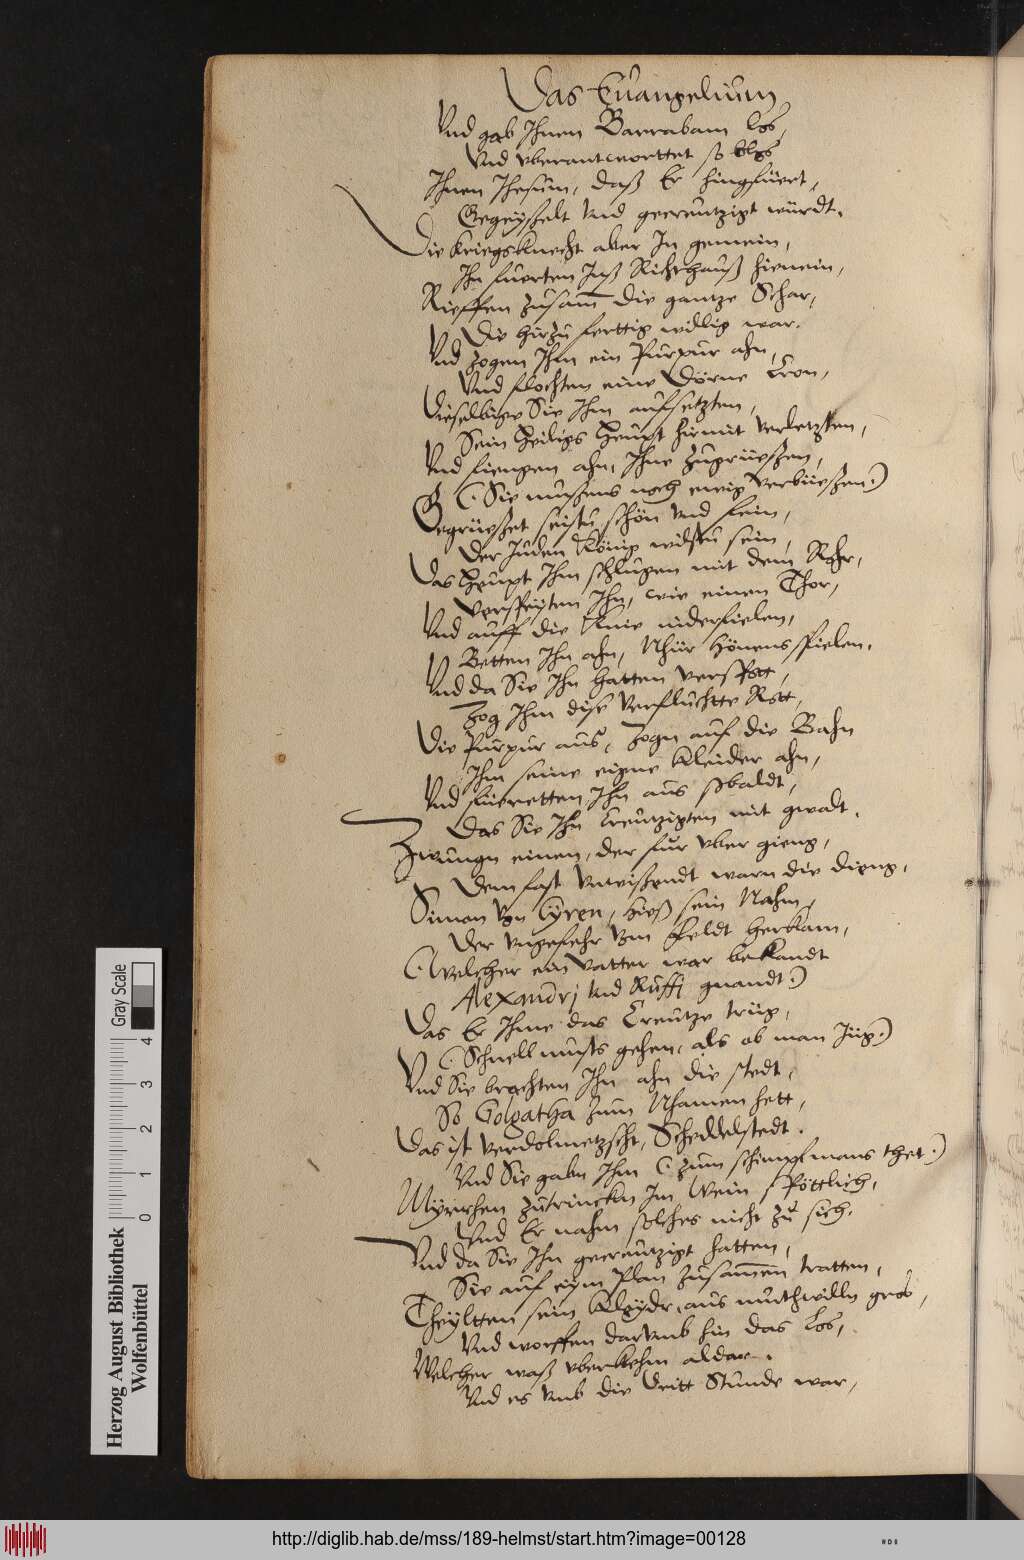 Das Euangelium
Vnd gab Ihnen Barrabam los,
Vnd vberantworttet so blos
Ihnen Ihesum, daß Er hingfüert,
Gegeyßelt vnd gecreutzigt würdt.
Die Kriegsknecht aber In gemein,
Ihn fuerten Inß Richthauß hienein,
Rieffen zusam̄ die gantze Schar,
Die hirzu fferttig willig war.
Vnd zogen Ihm ein Purpur ahn,
Vnd flochten eine Dörne Cron,
Dieselbige Sie Ihm aufsetzten,
Sein heiligs Heupt hirmit verletzten,
Vnd fiengen ahn, Ihne zugrüeßen,
(Sie mußens noch ewig verbüeßen.)
Gegrüeßet seistu schön vnd fein,
Der Juden König wilstu sein,
Das Heupt Ihm schlugen mit dem Rohr,
Verspeyten Ihn, wie einen Thor,
Vnd auff die Knie niderfielen,
Betten Ihn ahn, Nhür hönens spielen.
Vnd da Sie Ihn hatten verspott,
Zog Ihm dise verfluchtte Rott,
Die Purpur aus, Zogn auf die Bahn
Ihm seine eigne Kleider ahn,
Vnd füeretten Ihn aus sobaldt,
Das Sie Ihn Creutzigten mit gwalt.
Zwungn einen, der für vber gieng,
Dem fast vnwißendt warn die dieng,
Simon von Cyren, hieß sein Nahm,
Der vngefehr vom Feldt herkam,
(Welcher ein vatter war bekandt
Alexandrj vnd Ruffj gnandt.)
Das Er Ihme das Creutze trüg,
(Schnell musts gehen, als ob man Jüg.)
Vnd Sie brachten Ihn ahn die stedt,
So Golgatha zum Nhamen hett,
Das ist verdolmetzscht, Scheddelstedt.
Vnd Sie gabn Ihm (zum schimpf mans thet.)
Myrrhen zutrincken Im Wein spöttlich,
Vnd Er nahm solches nicht zu sich.
Vnd da Sie Ihn gecreutzigt hatten,
Sie auf eym Plan zusam̄en tratten,
Theyltten sein Kleydr, aus muthwilln gros,
Vnd worffen darumb hin das Los,
Welcher waß vberkehm aldar.
Vnd es vmb die dritt Stunde war,
Gray Scale
0 1 2 3 4
Herzog August Bibliothek
Wolfenbüttel
http://diglib.hab.de/mss/189-helmst/start.htm?image=00128